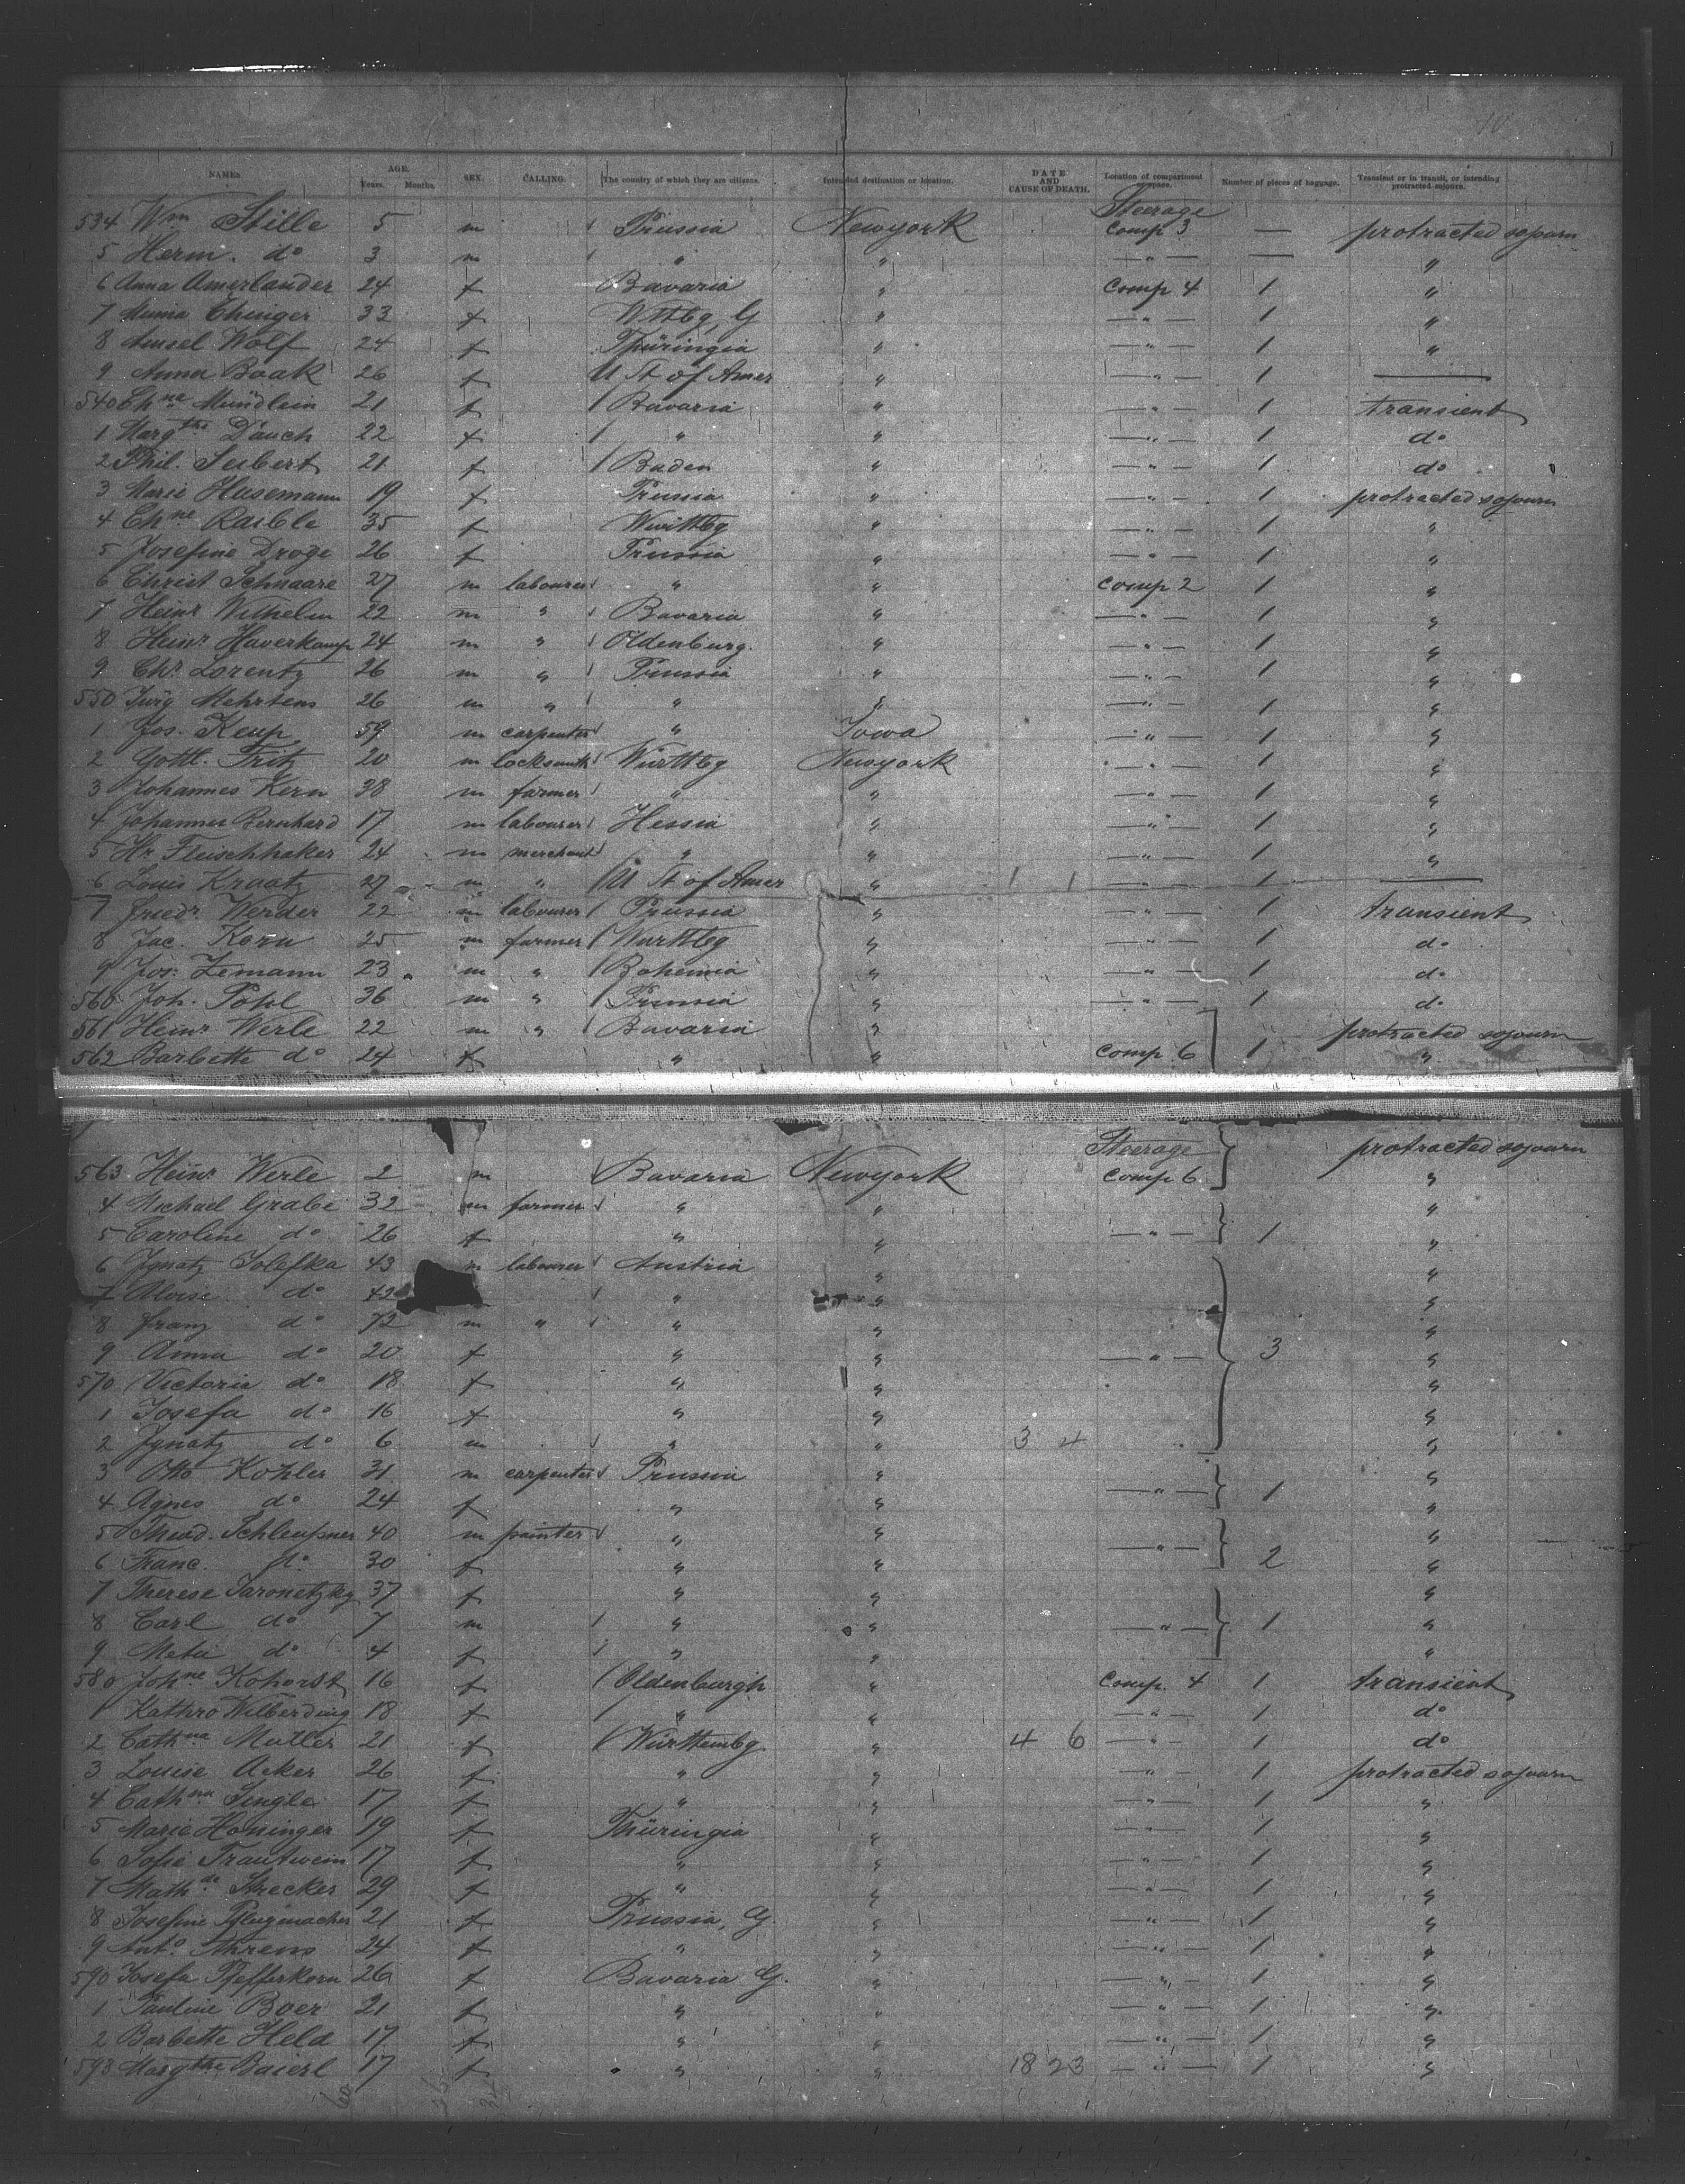 NAMES. AGE. Years. Months. SEX. CALLING. The country of which they are citizens. Intended destination or location. DATE AND CAUSE OF DEATH. Location of compartment or space. Number of pieces of baggage. Transient or in transit, or intending protracted sojourn.
Steerage
534 Wm Stille 5 m Prussia Newyork Comp 3 — protracted sojourn
5 Herm. do 3 m " " —"— — "
6 Anna Amerlander 24 f Bavaria " Comp 4 1 "
7 Minna Ehinger 33 f Wttbg, G " —"— 1 "
8 Amsel Wolf 24 f Thüringia " —"— 1 "
9 Anna Baak 26 f U St of Amer " —"— 1 —
540 Chne Mündlein 21 f / Bavaria " —"— 1 transient
1 Margthe Dauch 22 f / " " —"— 1 do
2 Phil. Seibert 21 f / Baden " —"— 1 do
3 Marie Husemann 19 f Prussia " —"— 1 protracted sojourn
4 Chne Raible 35 f Württbg " —"— 1 "
5 Josefine Droge 26 f Prussia " —"— 1 "
6 Christ Schnaare 27 m labourer " " Comp 2 1 "
7 Heinr Wilhelm 22 m " Bavaria " —"— 1 "
8 Heinr Haverkamp 24 m " Oldenburg. " —"— 1 "
9 Chr. Lorentz 26 m " Prussia " —"— 1 "
550 Jurg Mehrtens 26 m " " " —"— 1 "
1 Jos. Keup 59 m carpenter " Iowa —"— 1 "
2 Gottl. Fritz 20 m locksmith Württbg Newyork —"— 1 "
3 Johannes Kern 38 m farmer " " —"— 1 "
4 Johannes Bernhard 17 m labourer Hessia " —"— 1 "
5 Hr Fleischhaker 24 m merchant " " —"— 1 "
6 Louis Kraatz 27 m " / U St of Amer " 1 1 —"— 1 —
7 Friedr Werder 22 m labourer / Prussia " —"— 1 transient
8 Jac. Korn 25 m farmer / Württbg " —"— 1 do
9 Jos: Zemann 23 m " / Bohemia " —"— 1 do
560 Joh. Pohl 36 m " / Prussia " —"— 1 do
561 Heinr Werle 22 m " / Bavaria " protracted sojourn
562 Barbette do 24 f " " Comp 6 1 "
Steerage protracted sojourn
563 Heinr Werle 2 m Bavaria Newyork Comp 6 "
4 Michael Grabe 32 m farmer " " "
5 Caroline do 26 f " " —"— 1 "
6 Ignatz Solefka 43 m labourer Austria " "
7 Aloise do 42 " " "
8 Franz do 72 m " " " "
9 Anna do 20 f " " —"— 3 "
570 Victoria do 18 f " " "
1 Josefa do 16 f " " "
2 Ignatz do 6 m " " 3 4 "
3 Otto Kohler 31 m carpenter Prussia " "
4 Agnes do 24 f " " —"— 1 "
5 Thead. Schleußner 40 m painter " " "
6 Franc. do 30 f " " —"— 2 "
7 Therese Jaronetzky 37 f " " "
8 Carl do 7 m " " —"— 1 "
9 Meta do 4 f " " "
580 Johne Kohorst 16 f / Oldenburgh " Comp. 4 1 transient
1 Kathro Wilberding 18 f / " " —"— 1 do
2 Cathna Muller 21 f / Württembg " 4 6 —"— 1 do
3 Louise Acker 26 f " " —"— 1 protracted sojourn
4 Cathna Single 17 f " " —"— 1 "
5 Marie Honinger 19 f Thüringia " —"— 1 "
6 Sofie Trautwein 17 f " " —"— 1 "
7 Mathde Strecker 29 f " " —"— 1 "
8 Josefine Pflugmacher 21 f Prussia, G. " —"— 1 "
9 Anto Ahrens 24 f " " —"— 1 "
590 Josefa Pfefferkorn 26 f Bavaria G. " —"— 1 "
1 Pauline Boer 21 f " " —"— 1 "
2 Barbette Held 17 f " " —"— 1 "
593 Margthe Baierl 17 f " " 18 23 —"— 1 "